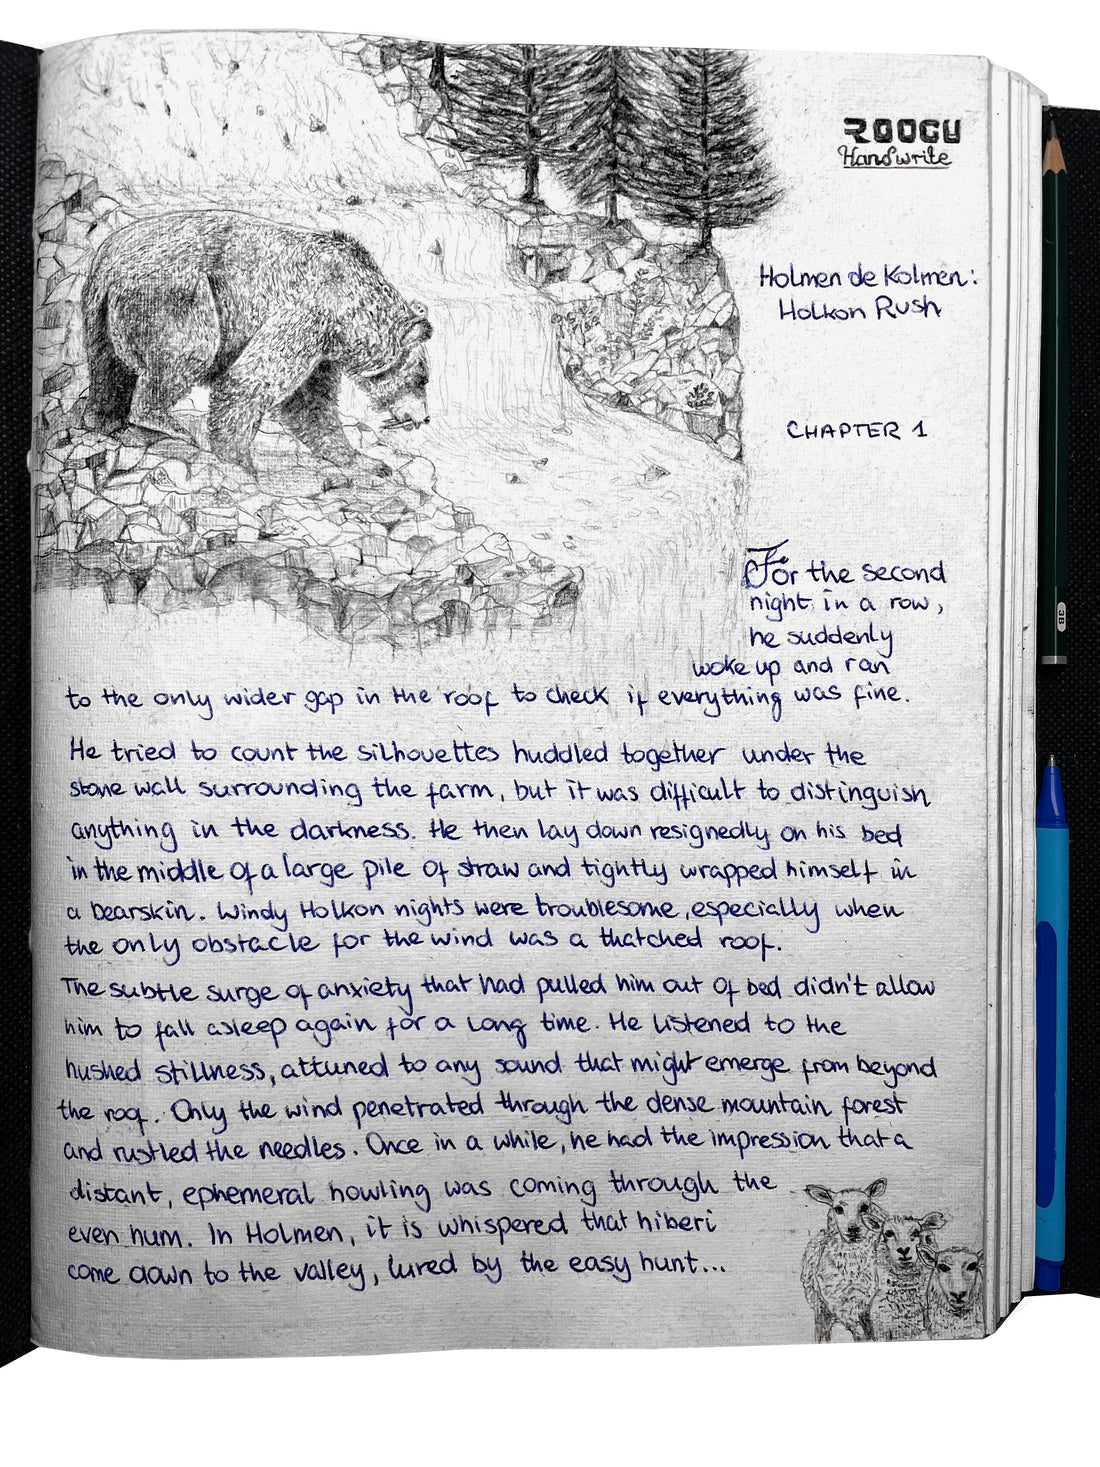 ROOGU
Handwrite
Holmen de Kolmen:
Holkon Rush
CHAPTER 1
For the second
night in a row,
he suddenly
woke up and ran
to the only wider gap in the roof to check if everything was fine.
He tried to count the silhouettes huddled together under the
stone wall surrounding the farm, but it was difficult to distinguish
anything in the darkness. He then lay down resignedly on his bed
in the middle of a large pile of straw and tightly wrapped himself in
a bearskin. Windy Holkon nights were troublesome, especially when
the only obstacle for the wind was a thatched roof.
The subtle surge of anxiety that had pulled him out of bed didn't allow
him to fall asleep again for a long time. He listened to the
hushed stillness, attuned to any sound that might emerge from beyond
the roof. Only the wind penetrated through the dense mountain forest
and rustled the needles. Once in a while, he had the impression that a
distant, ephemeral howling was coming through the
even hum. In Holmen, it is whispered that hiberi
come down to the valley, lured by the easy hunt...
3B